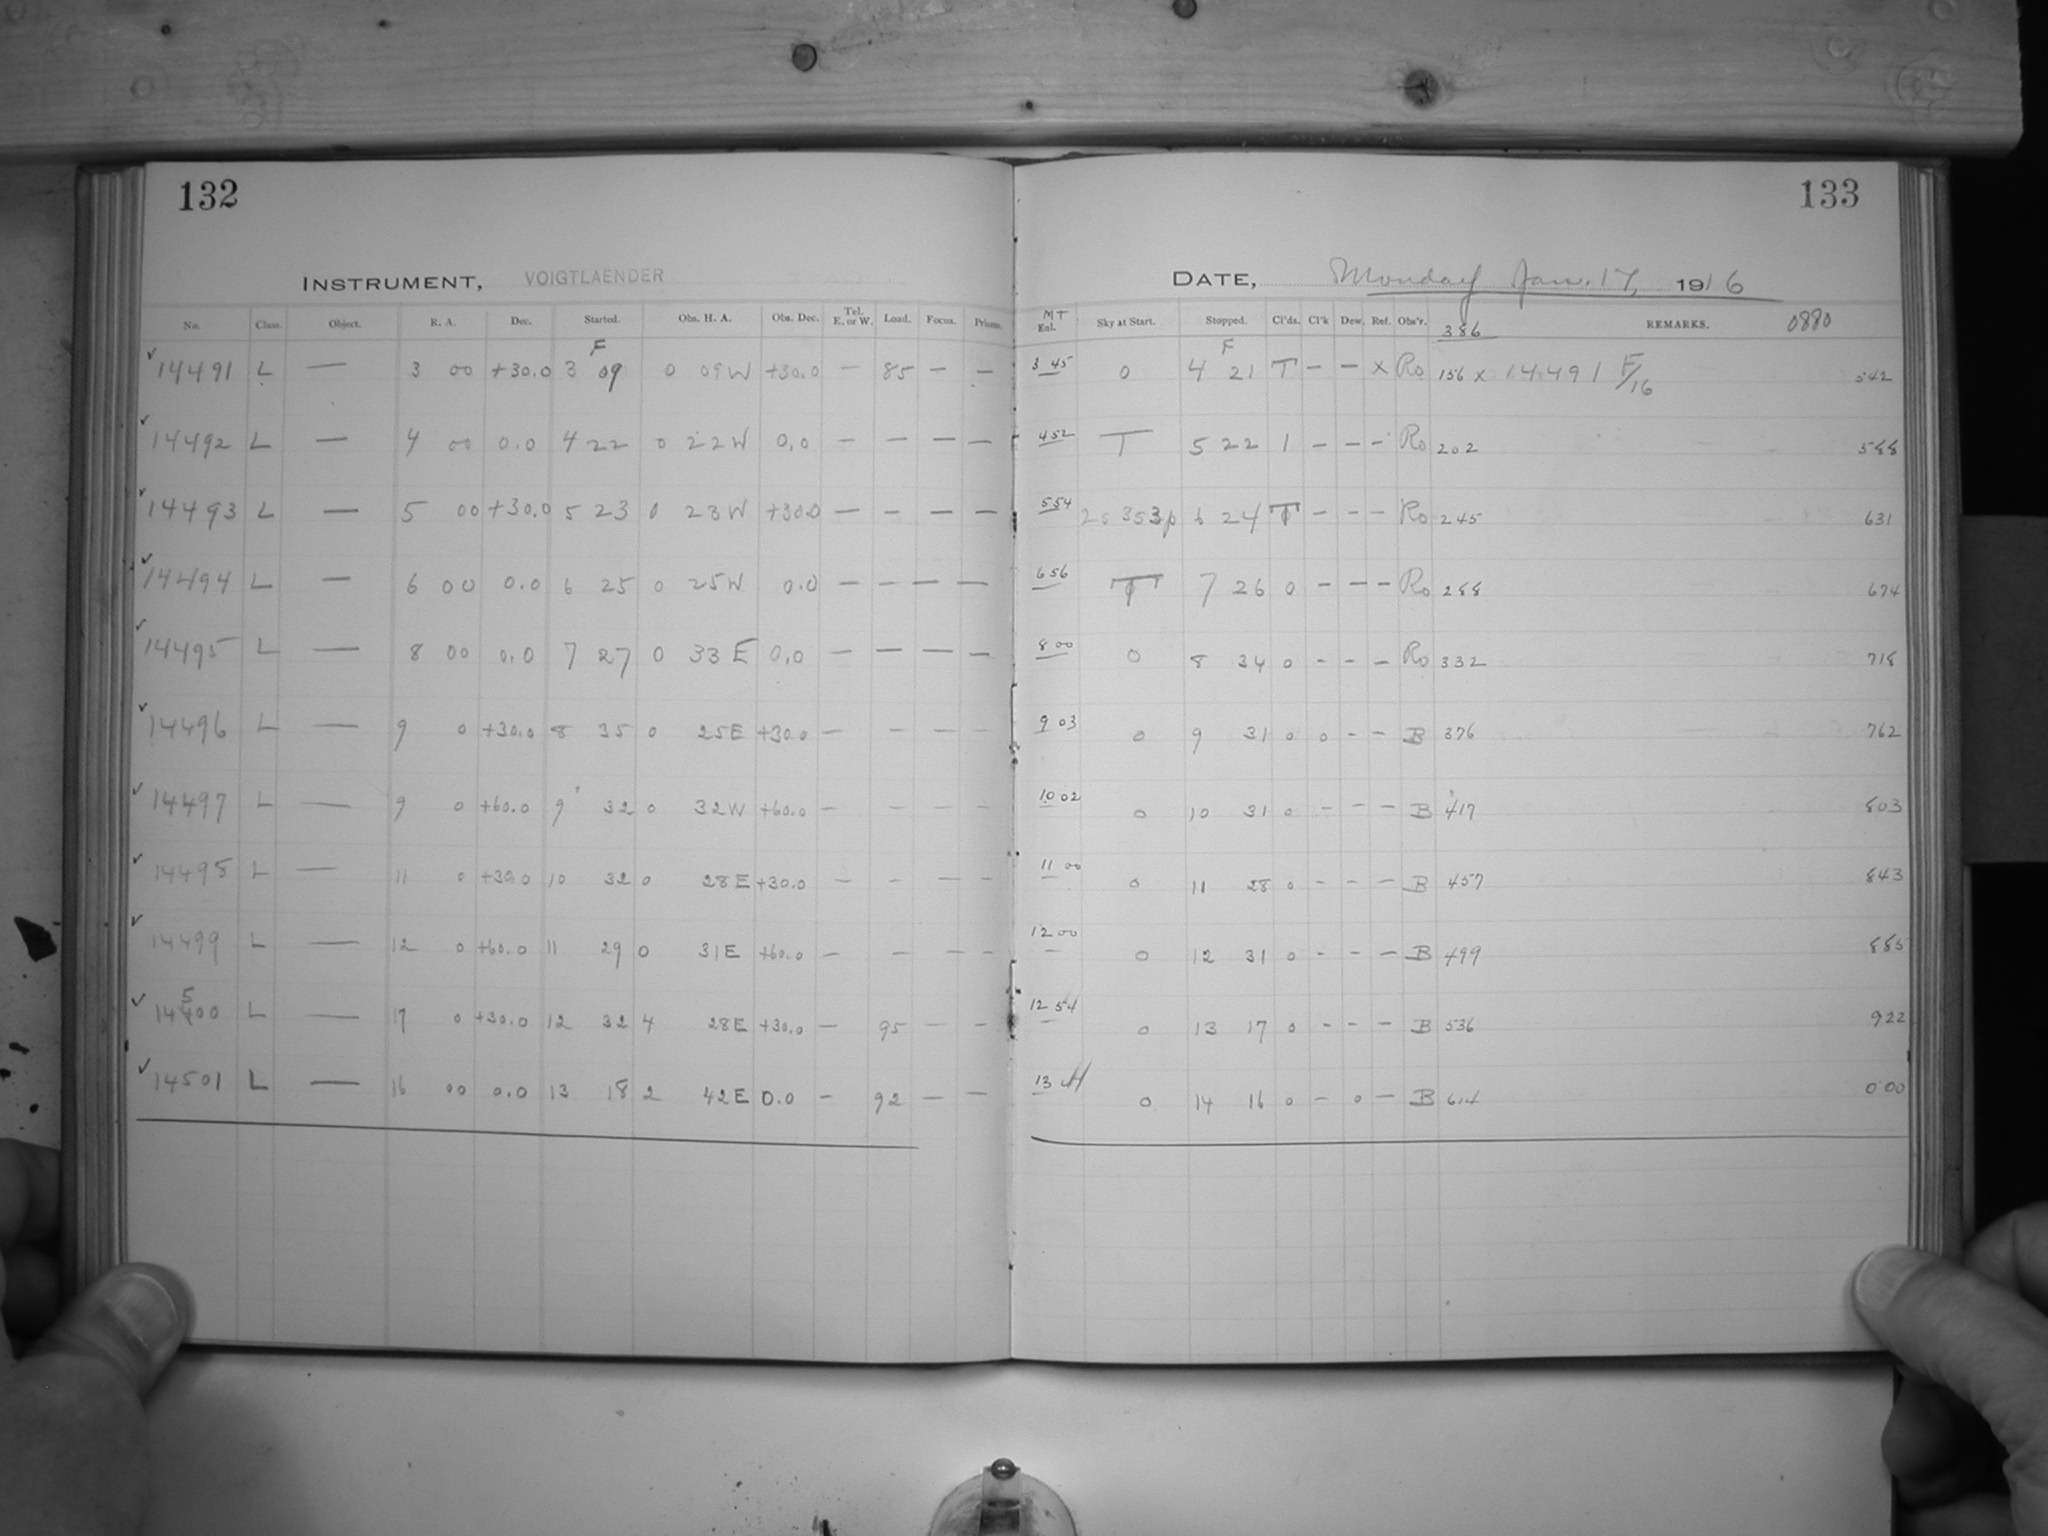 132
133
INSTRUMENT, VOIGTLAENDER
DATE, Monday Jan. 17, 1916
No. Class. Object. R. A. Dec. Started. Obs. H. A. Obs. Dec. Tel. E. or W. Load. Focus. Prisms. MT Enl. Sky at Start. Stopped. Cl'ds. Cl'k Dew. Ref. Obs'r. 386 REMARKS. 0880
✓ 14491 L — 3 00 +30.0 3 F 09 0 09W +30.0 — 85 — — 3 45 0 4 F 21 T — — x Ro 156 x 14491 F/16 542
✓ 14492 L — 4 00 0.0 4 22 0 22W 0.0 — — — — 4 52 T 5 22 1 — — — Ro 202 588
✓ 14493 L — 5 00 +30.0 5 23 0 23W +30.0 — — — — 5 54 2s 3s 53p 6 24 T — — — Ro 245 631
✓ 14494 L — 6 00 0.0 6 25 0 25W 0.0 — — — — 6 56 T 7 26 0 — — — Ro 288 674
✓ 14495 L — 8 00 0.0 7 27 0 33E 0.0 — — — — 8 00 0 8 34 0 — — — Ro 332 718
✓ 14496 L — 9 0 +30.0 8 35 0 25E +30.0 — — — — 9 03 0 9 31 0 0 — — B 376 762
✓ 14497 L — 9 0 +60.0 9 32 0 32W +60.0 — — — — 10 02 0 10 31 0 — — — B 417 803
✓ 14498 L — 11 0 +30.0 10 32 0 28E +30.0 — — — — 11 00 0 11 28 0 — — — B 457 843
✓ 14499 L — 12 0 +60.0 11 29 0 31E +60.0 — — — — 12 00 0 12 31 0 — — — B 499 885
✓ 14500 L — 17 0 +30.0 12 32 4 28E +30.0 — 95 — — 12 54 0 13 17 0 — — — B 536 922
✓ 14501 L — 16 00 0.0 13 18 2 42E 0.0 — 92 — — 13 0 14 16 0 — 0 — B 614 000